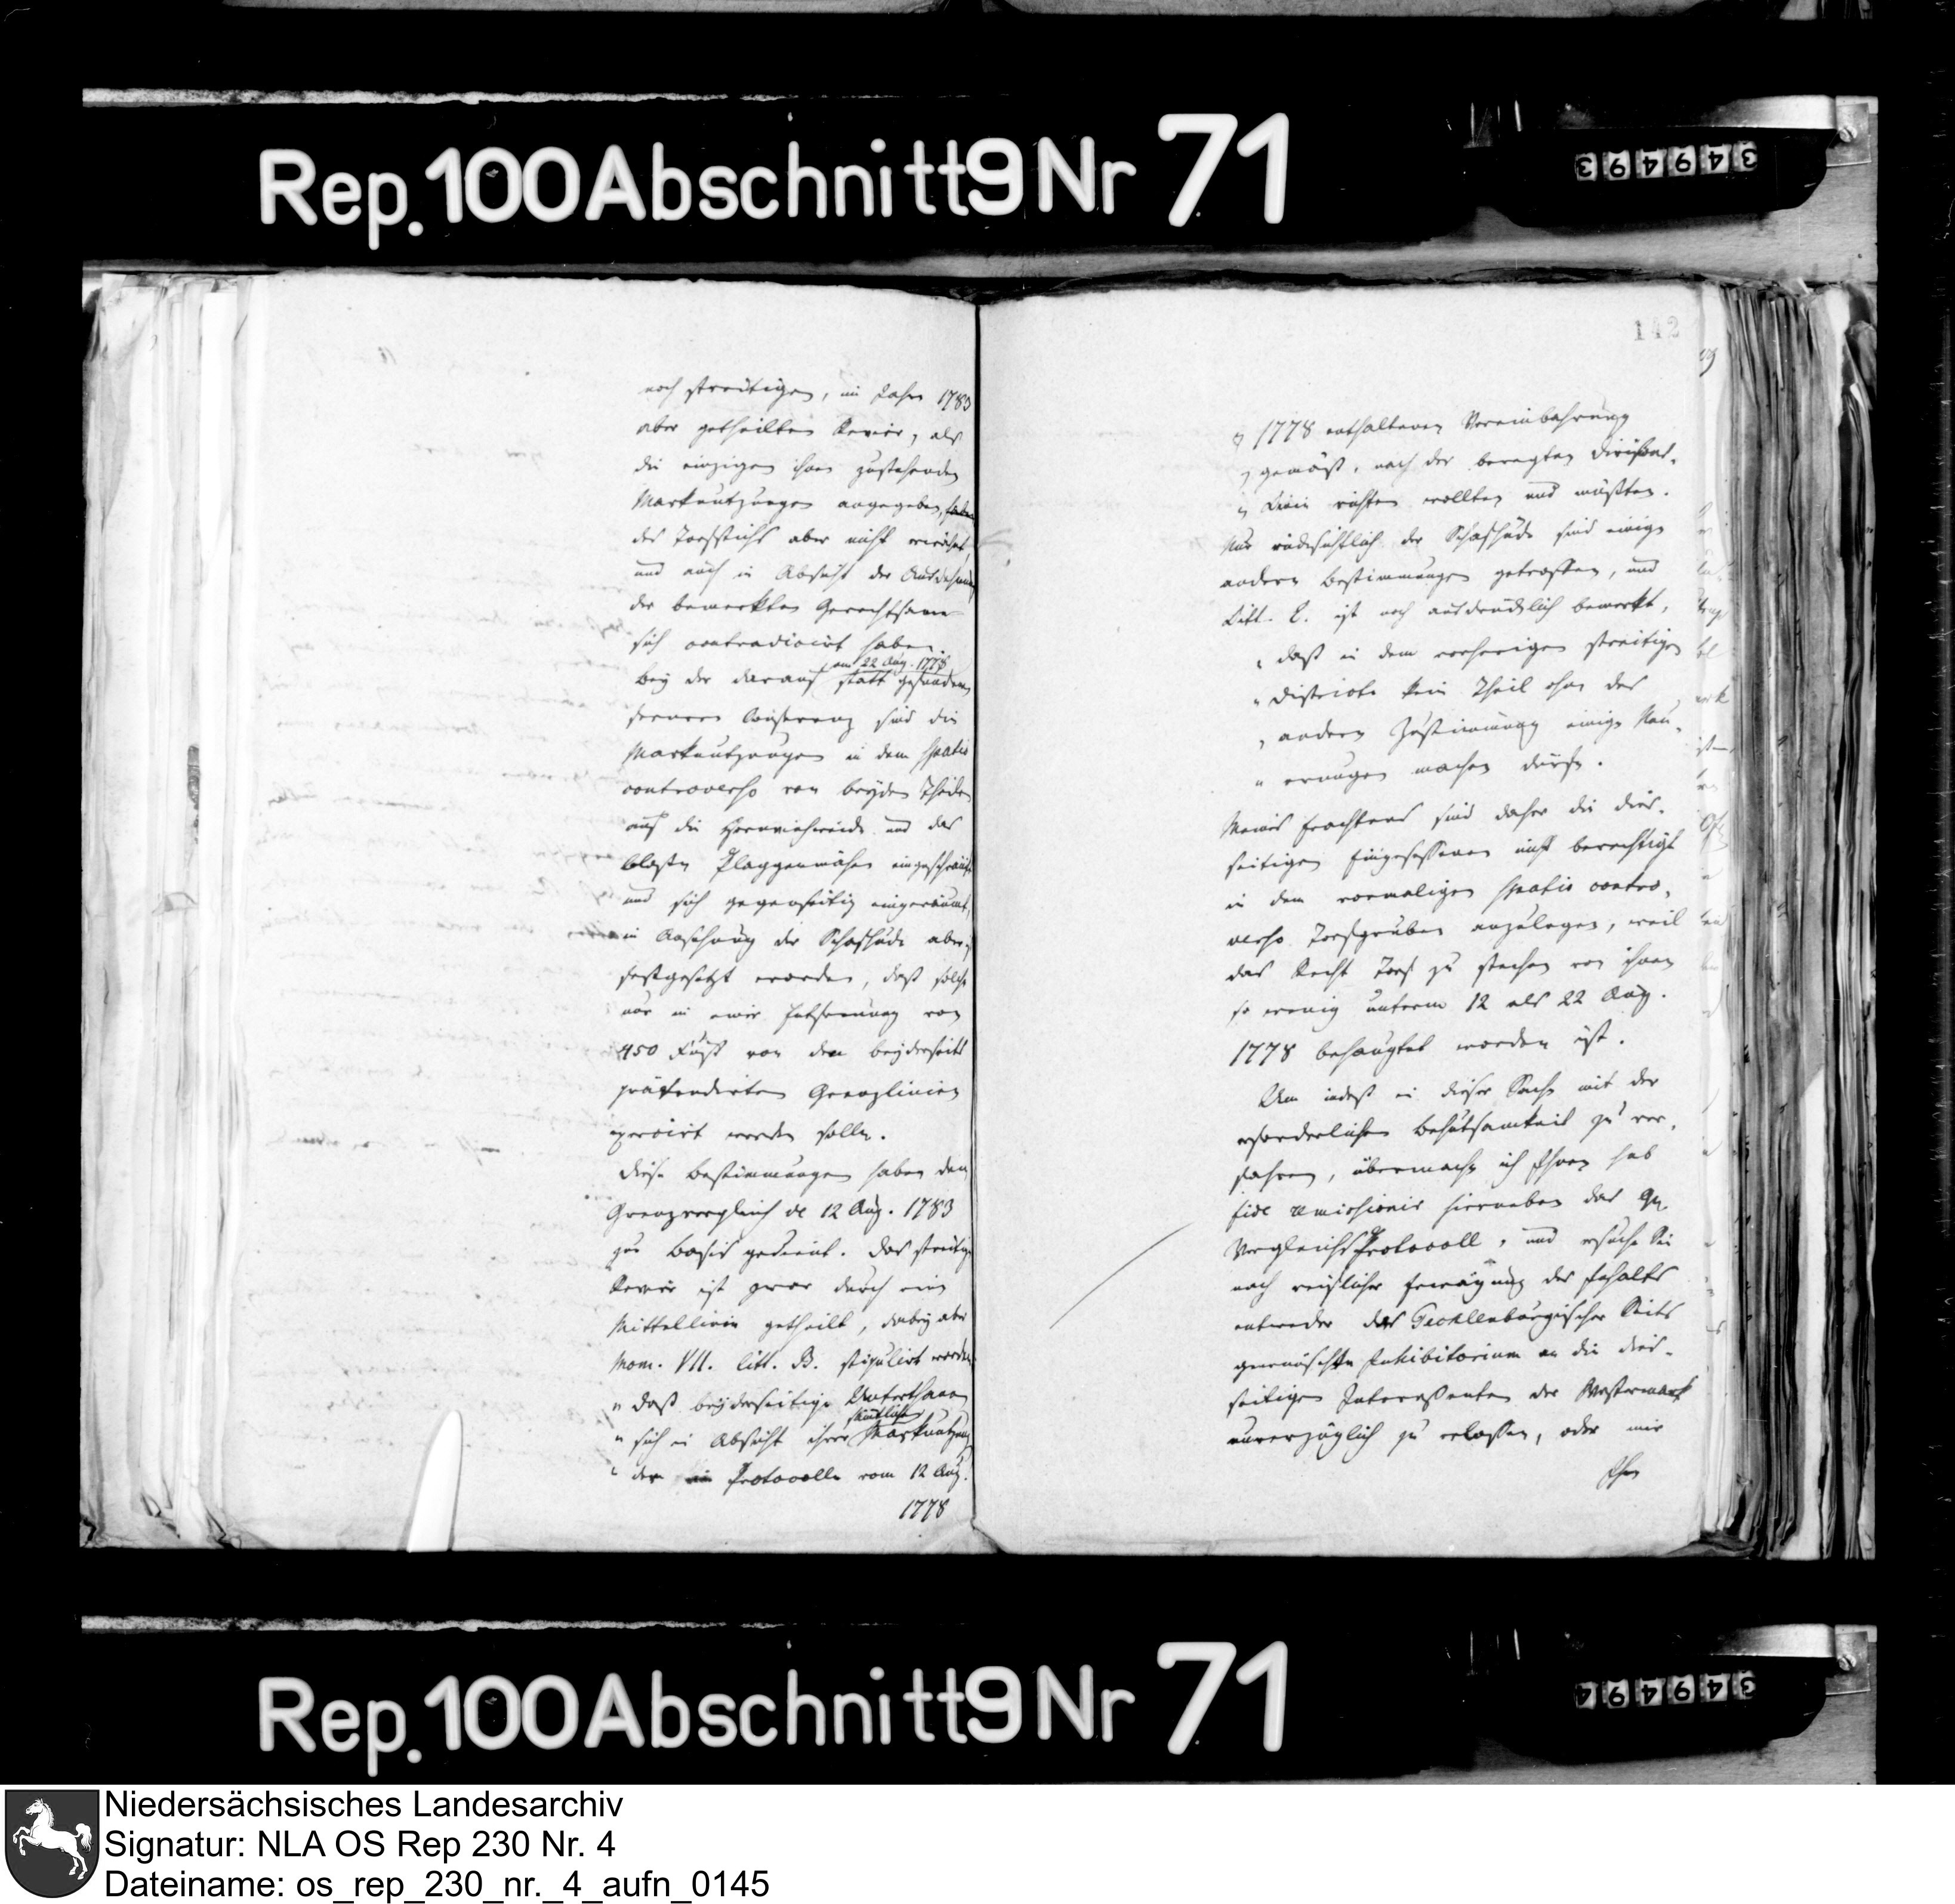 Rep. 100 Abschnitt 9 Nr 71
349493
noch streitigen, im Jahre 1783
aber getheilten Revier, als
die einzigen ihnen zustehenden
Marknutzungen angegeben,
des Torfstichs aber nicht erwähnt,
und auch in Absicht der Ausdehnung
der bemerkten Gerechtsame
sich contradicirt haben.
am 22 Aug. 1778
Bey der darauf statt gefundenen
ferneren Conferenz sind die
Marknutzungen in dem spatio
controverso von beyden Theilen
auf die Hornviehweide und das
bloße Plaggenmähen eingeschränkt
und sich gegenseitig eingeräumt,
in Ansehung der Schafhude aber
festgesetzt worden, daß solche
nur in einer Entfernung von
450 Fuß von den beyderseits
prätendirten Grenzlinien
exercirt werden solle.
Diese Bestimmungen haben dem
Grenzvergleich de 12 Aug. 1783
zur Basis gedient. Das streitige
Revier ist zwar durch eine
Mittellinie getheilt, dabey aber
Mom. VII. litt. B. stipulirt worden
" daß beyderseitige Unterthanen
sämtlicher
" sich in Absicht ihrer Marknutzung
" der im Protocolle vom 12 Aug.
1778
142
" 1778 enthaltenen Vereinbahrung
" gemäß, nach der beregten Divisions-
" Linie richten wollten und müßten.
Nur rücksichtlich der Schafhude sind einige
andere Bestimmungen getroffen, und
Litt. C. ist noch ausdrücklich bemerkt,
" daß in dem vorherigen streitigen
" Districte kein Theil ohne des
" andern Zustimmung einige Neu-
" erungen machen dürfe.
Meines Erachtens sind daher die dies-
seitigen Eingesessenen nicht berechtigt
in dem vormaligen spatio contro-
verso Torfgruben anzulegen, weil
das Recht Torf zu stechen von ihnen
so wenig unterm 12 als 22 Aug.
1778 behauptet worden ist.
Um indeß in dieser Sache mit der
erforderlichen Behutsamkeit zu ver-
fahren, übermache ich Ihnen sub
fide remissionis hierneben das
Vergleichs Protocoll, und ersuche Sie
nach reiflicher Erwägung des Inhalts
entweder das Tecklenburgischer Seits
gewünschte Inhibitorium an die dies-
seitigen Interessenten der Westermark
unverzüglich zu erlassen, oder mir
Ihre
Rep. 100 Abschnitt 9 Nr 71
349494
Niedersächsisches Landesarchiv
Signatur: NLA OS Rep 230 Nr. 4
Dateiname: os_rep_230_nr._4_aufn_0145